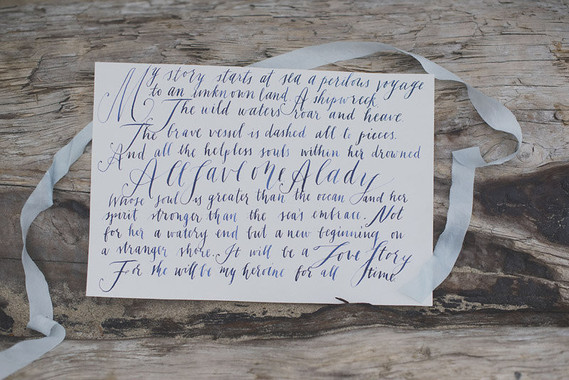 My story starts at sea a perilous voyage
to an unknown land. A shipwreck.
The wild waters roar and heave.
The brave vessel is dashed all to pieces.
And all the helpless souls within her drowned
All save one A lady
Whose soul is greater than the ocean and her
spirit stronger than the sea's embrace. Not
for her a watery end but a new beginning on
a stranger shore. It will be a Love Story
For she will be my heroine for all time